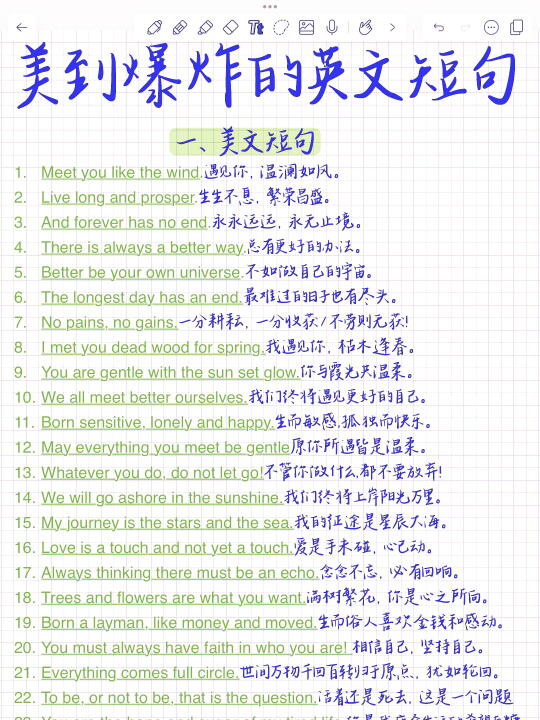 Tt
美到爆炸的英文短句
一、美文短句
1. Meet you like the wind.遇见你, 温澜如风。
2. Live long and prosper.生生不息, 繁荣昌盛。
3. And forever has no end.永永远远, 永无止境。
4. There is always a better way.总有更好的办法。
5. Better be your own universe.不如做自己的宇宙。
6. The longest day has an end.最难过的日子也有尽头。
7. No pains, no gains.一分耕耘, 一分收获/不劳则无获!
8. I met you dead wood for spring.我遇见你, 枯木逢春。
9. You are gentle with the sun set glow.你与霞光共温柔。
10. We all meet better ourselves.我们终将遇见更好的自己。
11. Born sensitive, lonely and happy.生而敏感,孤独而快乐。
12. May everything you meet be gentle原你所遇皆是温柔。
13. Whatever you do, do not let go!不管你做什么都不要放弃!
14. We will go ashore in the sunshine.我们终将上岸阳光万里。
15. My journey is the stars and the sea.我的征途是星辰大海。
16. Love is a touch and not yet a touch.爱是手未碰, 心已动。
17. Always thinking there must be an echo.念念不忘, 必有回响。
18. Trees and flowers are what you want.满树繁花, 你是心之所向。
19. Born a layman, like money and moved.生而俗人喜欢金钱和感动。
20. You must always have faith in who you are! 相信自己, 坚持自己。
21. Everything comes full circle.世间万物千回百转归于原点, 犹如轮回。
22. To be, or not to be, that is the question.活着还是死去, 这是一个问题